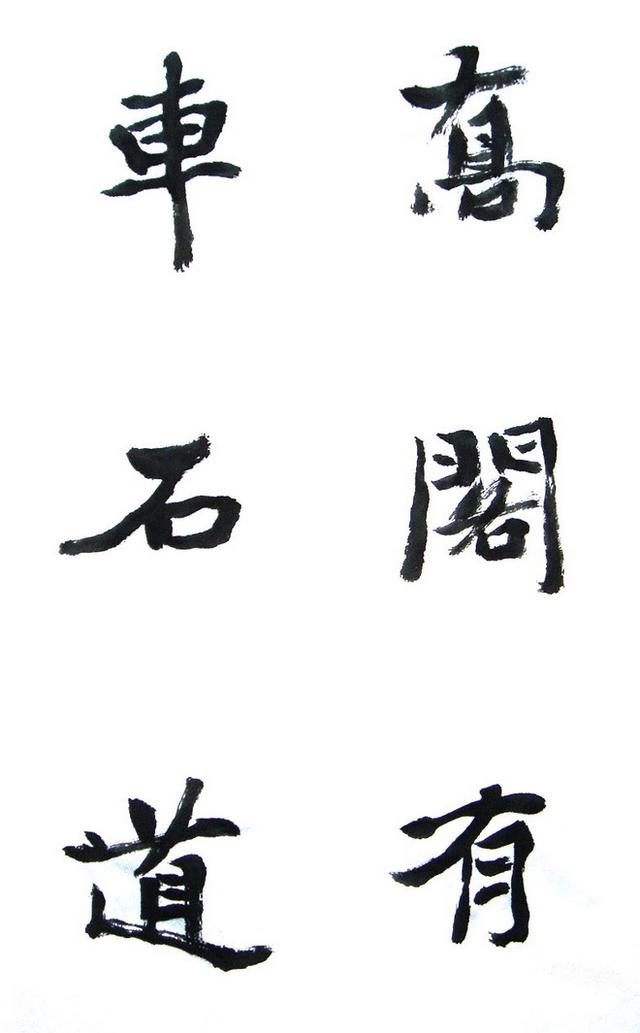 高閣有
車石道